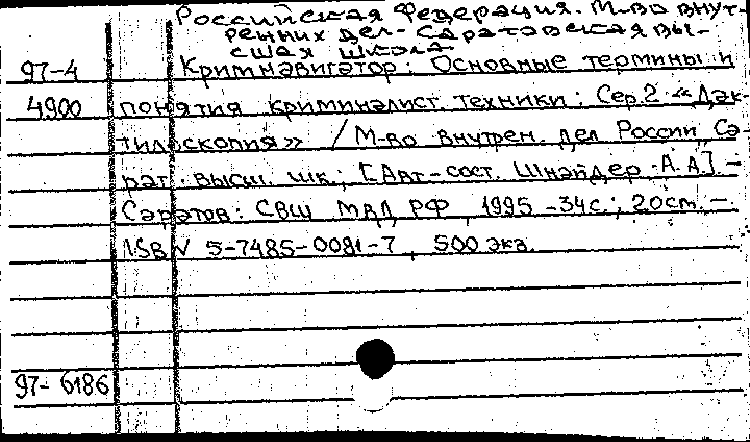 Российская Федерация. М-во внут-
ренних дел. Саратовская вы-
сшая школа
97-4 Криминавигатор: Основные термины и
4900 понятия криминалист. техники: Сер. 2 «Дак-
тилоскопия» / М-во внутрен. дел России, Са-
рат. высш. шк.; [Авт.-сост. Шнайдер А.А.]. -
Саратов: СВШ МВД РФ, 1995 - 34 с.; 20 см. -
ISBN 5-7485-0081-7, 500 экз.
97-6186